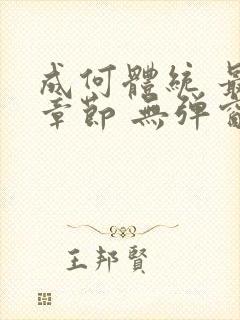 成何體統 最
章節 無彈窗
王邦賢